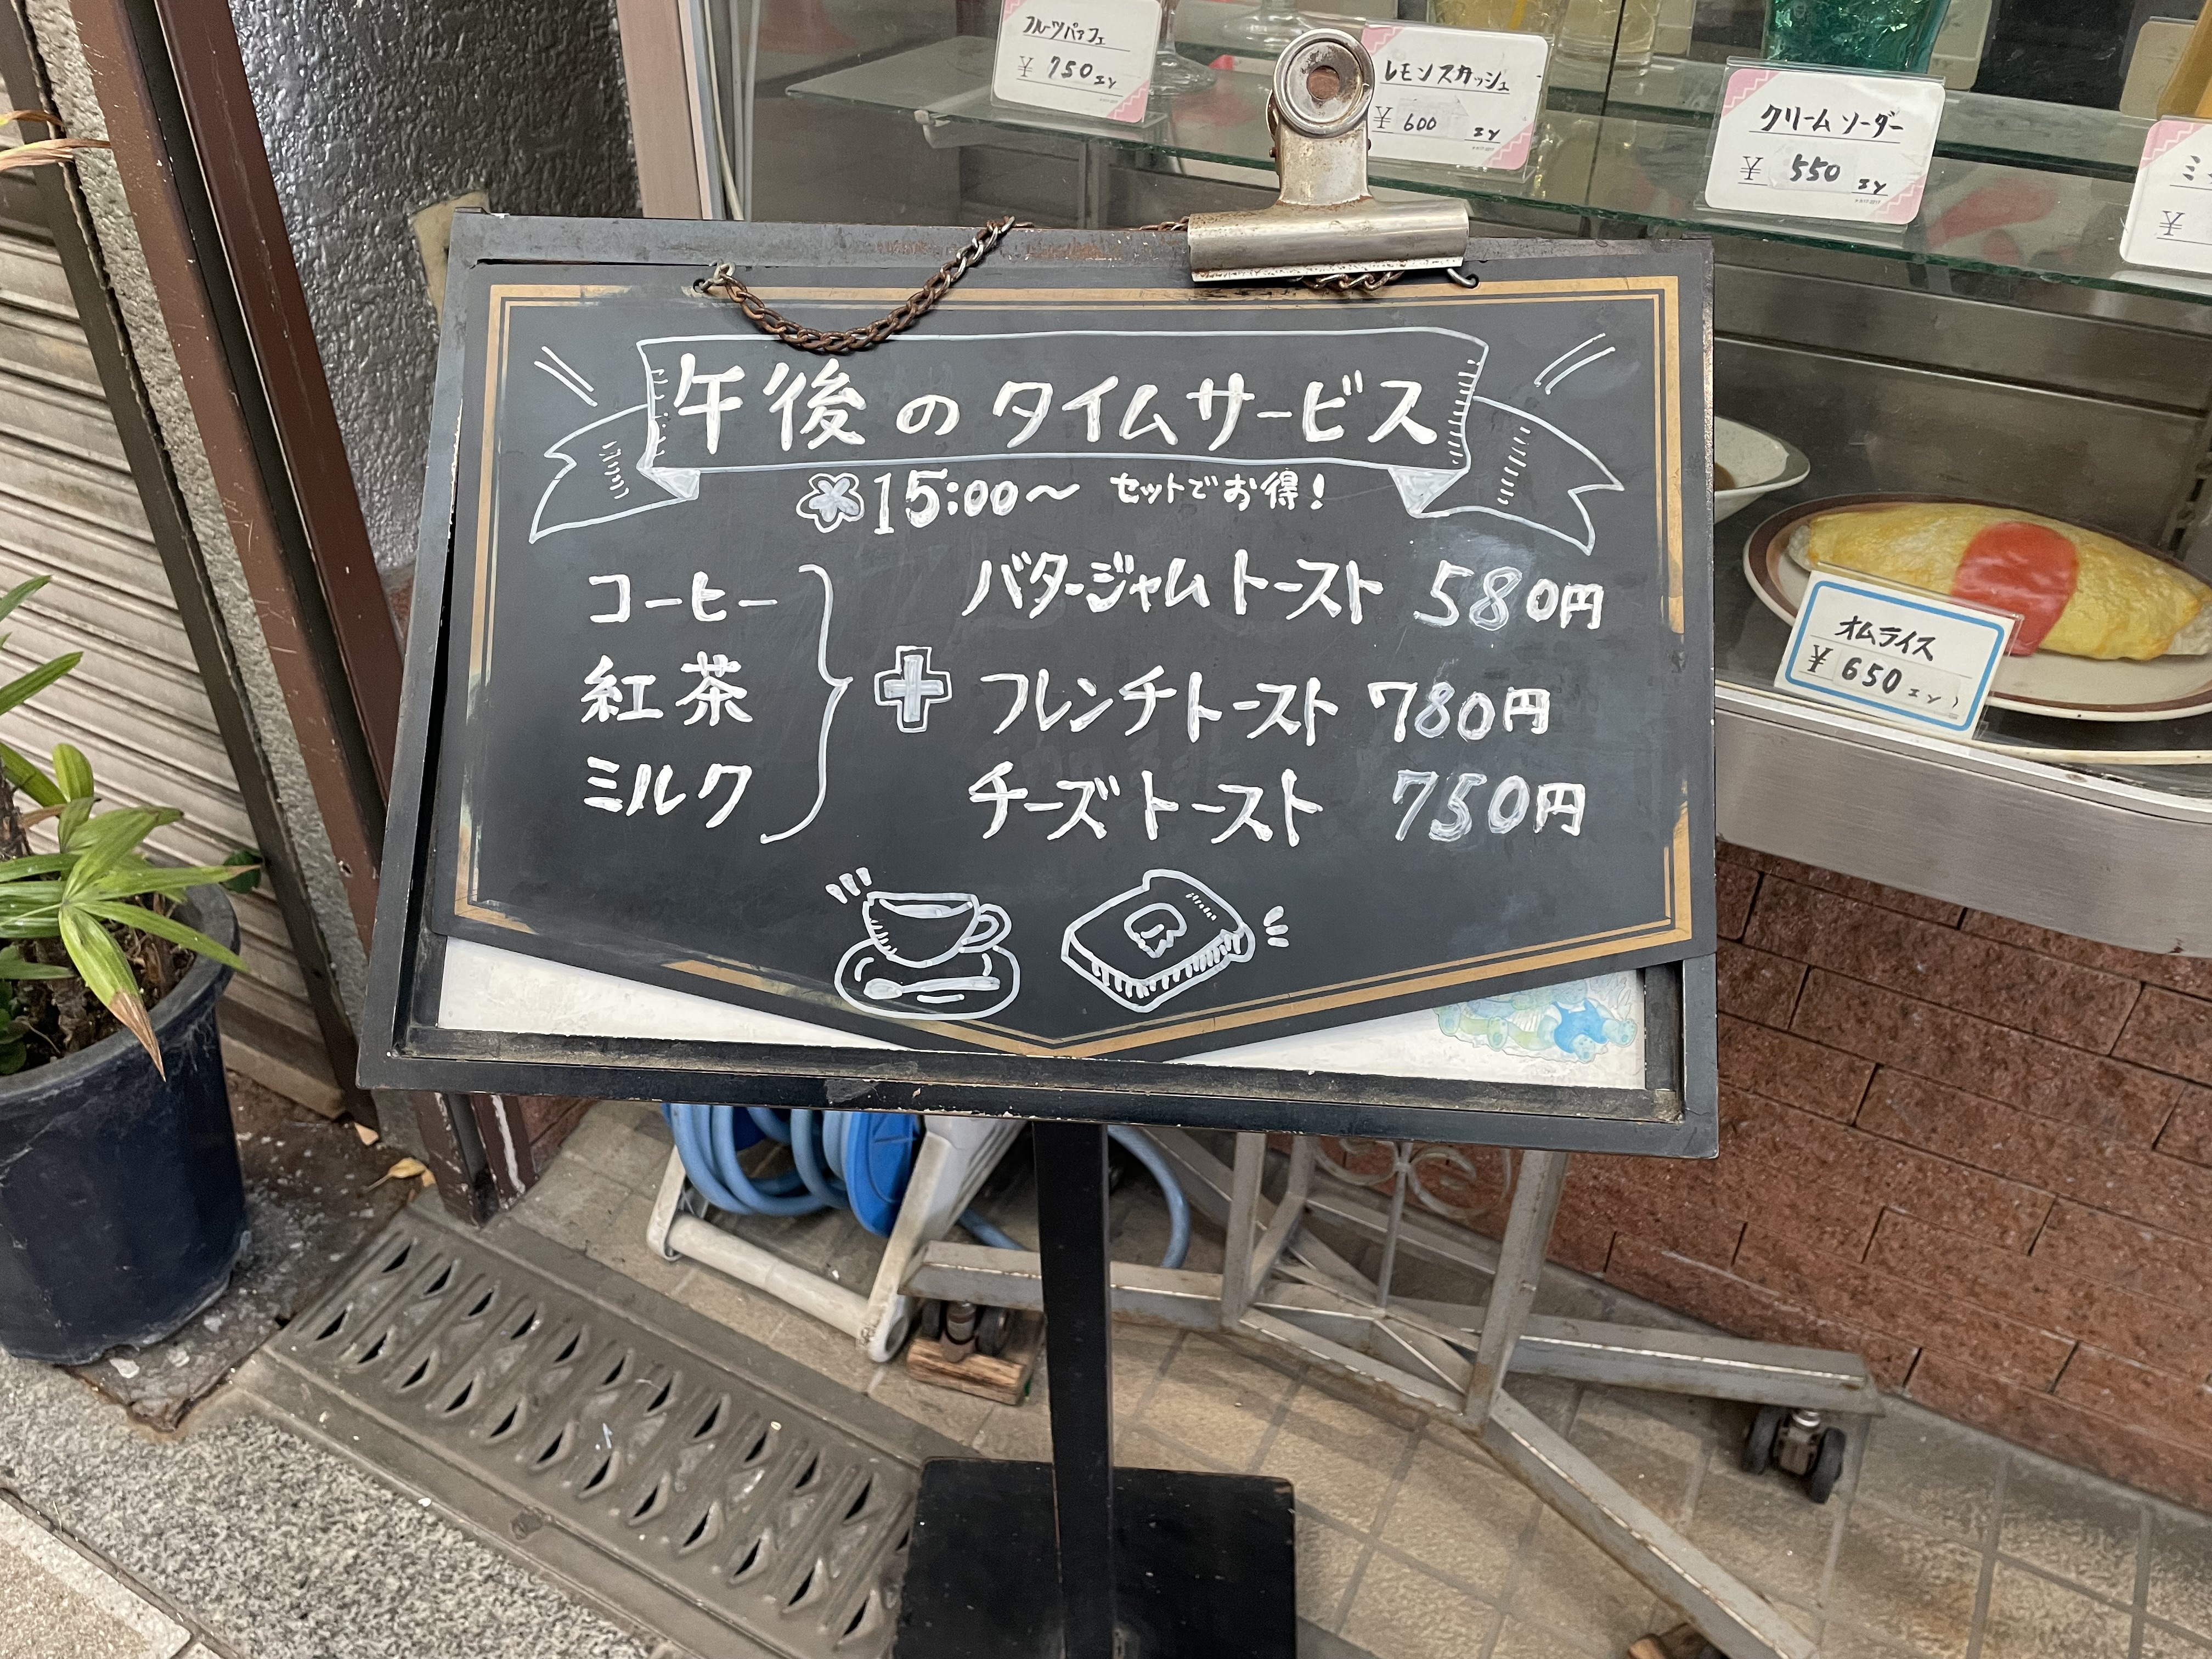 フルーツパフェ
¥ 750 エン
レモンスカッシュ
¥ 600 エン
クリームソーダー
¥ 550 エン
ミ
¥
午後のタイムサービス
15:00〜 セットでお得!
コーヒー
紅茶
ミルク
+
バタージャムトースト 580円
フレンチトースト 780円
チーズトースト 750円
オムライス
¥ 650 エン